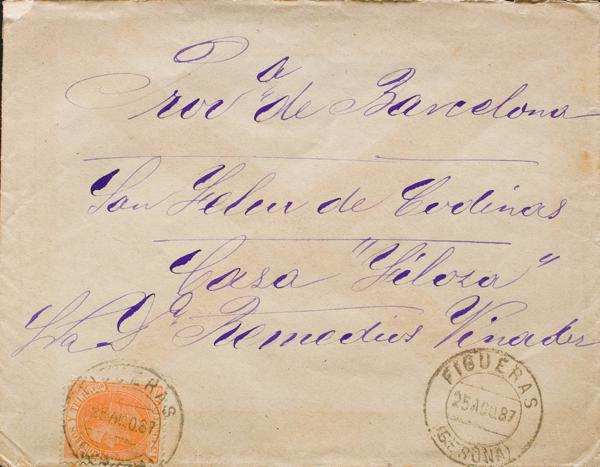 Prov.ª de Barcelona
San Feliu de Codinas
Casa "Filoza"
Sra D.ª Remedios Vinader
FIGUERAS
25 AGO. 87
FIGUERAS
25 AGO. 87
(GERONA)